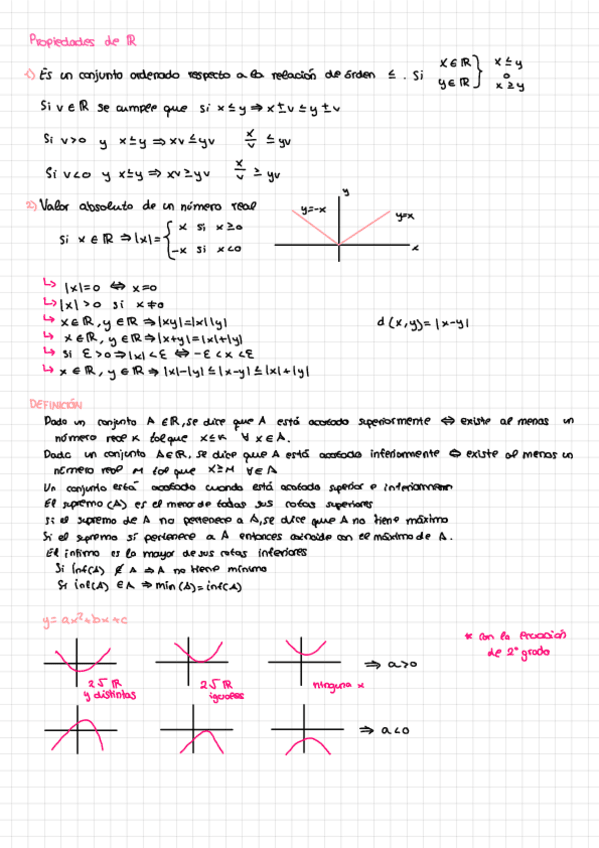 Propiedades de ℝ
1) Es un conjunto ordenado respecto a la relación de órden ≤. Si x∈ℝ y∈ℝ } x≤y o x≥y
Si v∈ℝ se cumple que si x≤y ⇒ x±v≤y±v
Si v>0 y x≤y ⇒ xv≤yv x/v ≤ yv
Si v<0 y x≤y ⇒ xv≥yv x/v ≥ yv
2) Valor absoluto de un número real
Si x∈ℝ ⇒ |x|= { x si x≥0
-x si x<0
y
y=-x
y=x
x
↳ |x|=0 ⇔ x=0
↳ |x|>0 si x≠0
↳ x∈ℝ, y∈ℝ ⇒ |xy|=|x||y|
d(x,y)=|x-y|
↳ x∈ℝ, y∈ℝ ⇒ |x+y|=|x|+|y|
↳ si ε>0 ⇒ |x|<ε ⇔ -ε<x<ε
↳ x∈ℝ, y∈ℝ ⇒ |x|-|y|≤|x-y|≤|x|+|y|
DEFINICIÓN
Dado un conjunto A∈ℝ, se dice que A está acotado superiormente ⇔ existe al menos un
número real K tal que x≤K ∀ x∈A.
Dado un conjunto A∈ℝ, se dice que A está acotado inferiormente ⇔ existe al menos un
número real M tal que x≥M ∀∈A
Un conjunto está acotado cuando está acotado superior e inferiormen
El supremo (A) es el menor de todas sus cotas superiores
Si el supremo de A no pertenece a A, se dice que A no tiene máximo
Si el supremo sí pertenece a A entonces coincide con el máximo de A.
El ínfimo es la mayor de sus cotas inferiores
Si inf(A) ∉ A ⇒ A no tiene mínimo
Si inf(A) ∈A ⇒ min(A)=inf(A)
y=ax²+bx+c
* con la ecuación
de 2º grado
⇒ a>0
2√ ℝ
y distintas
2√ ℝ
iguales
ninguna x
⇒ a<0